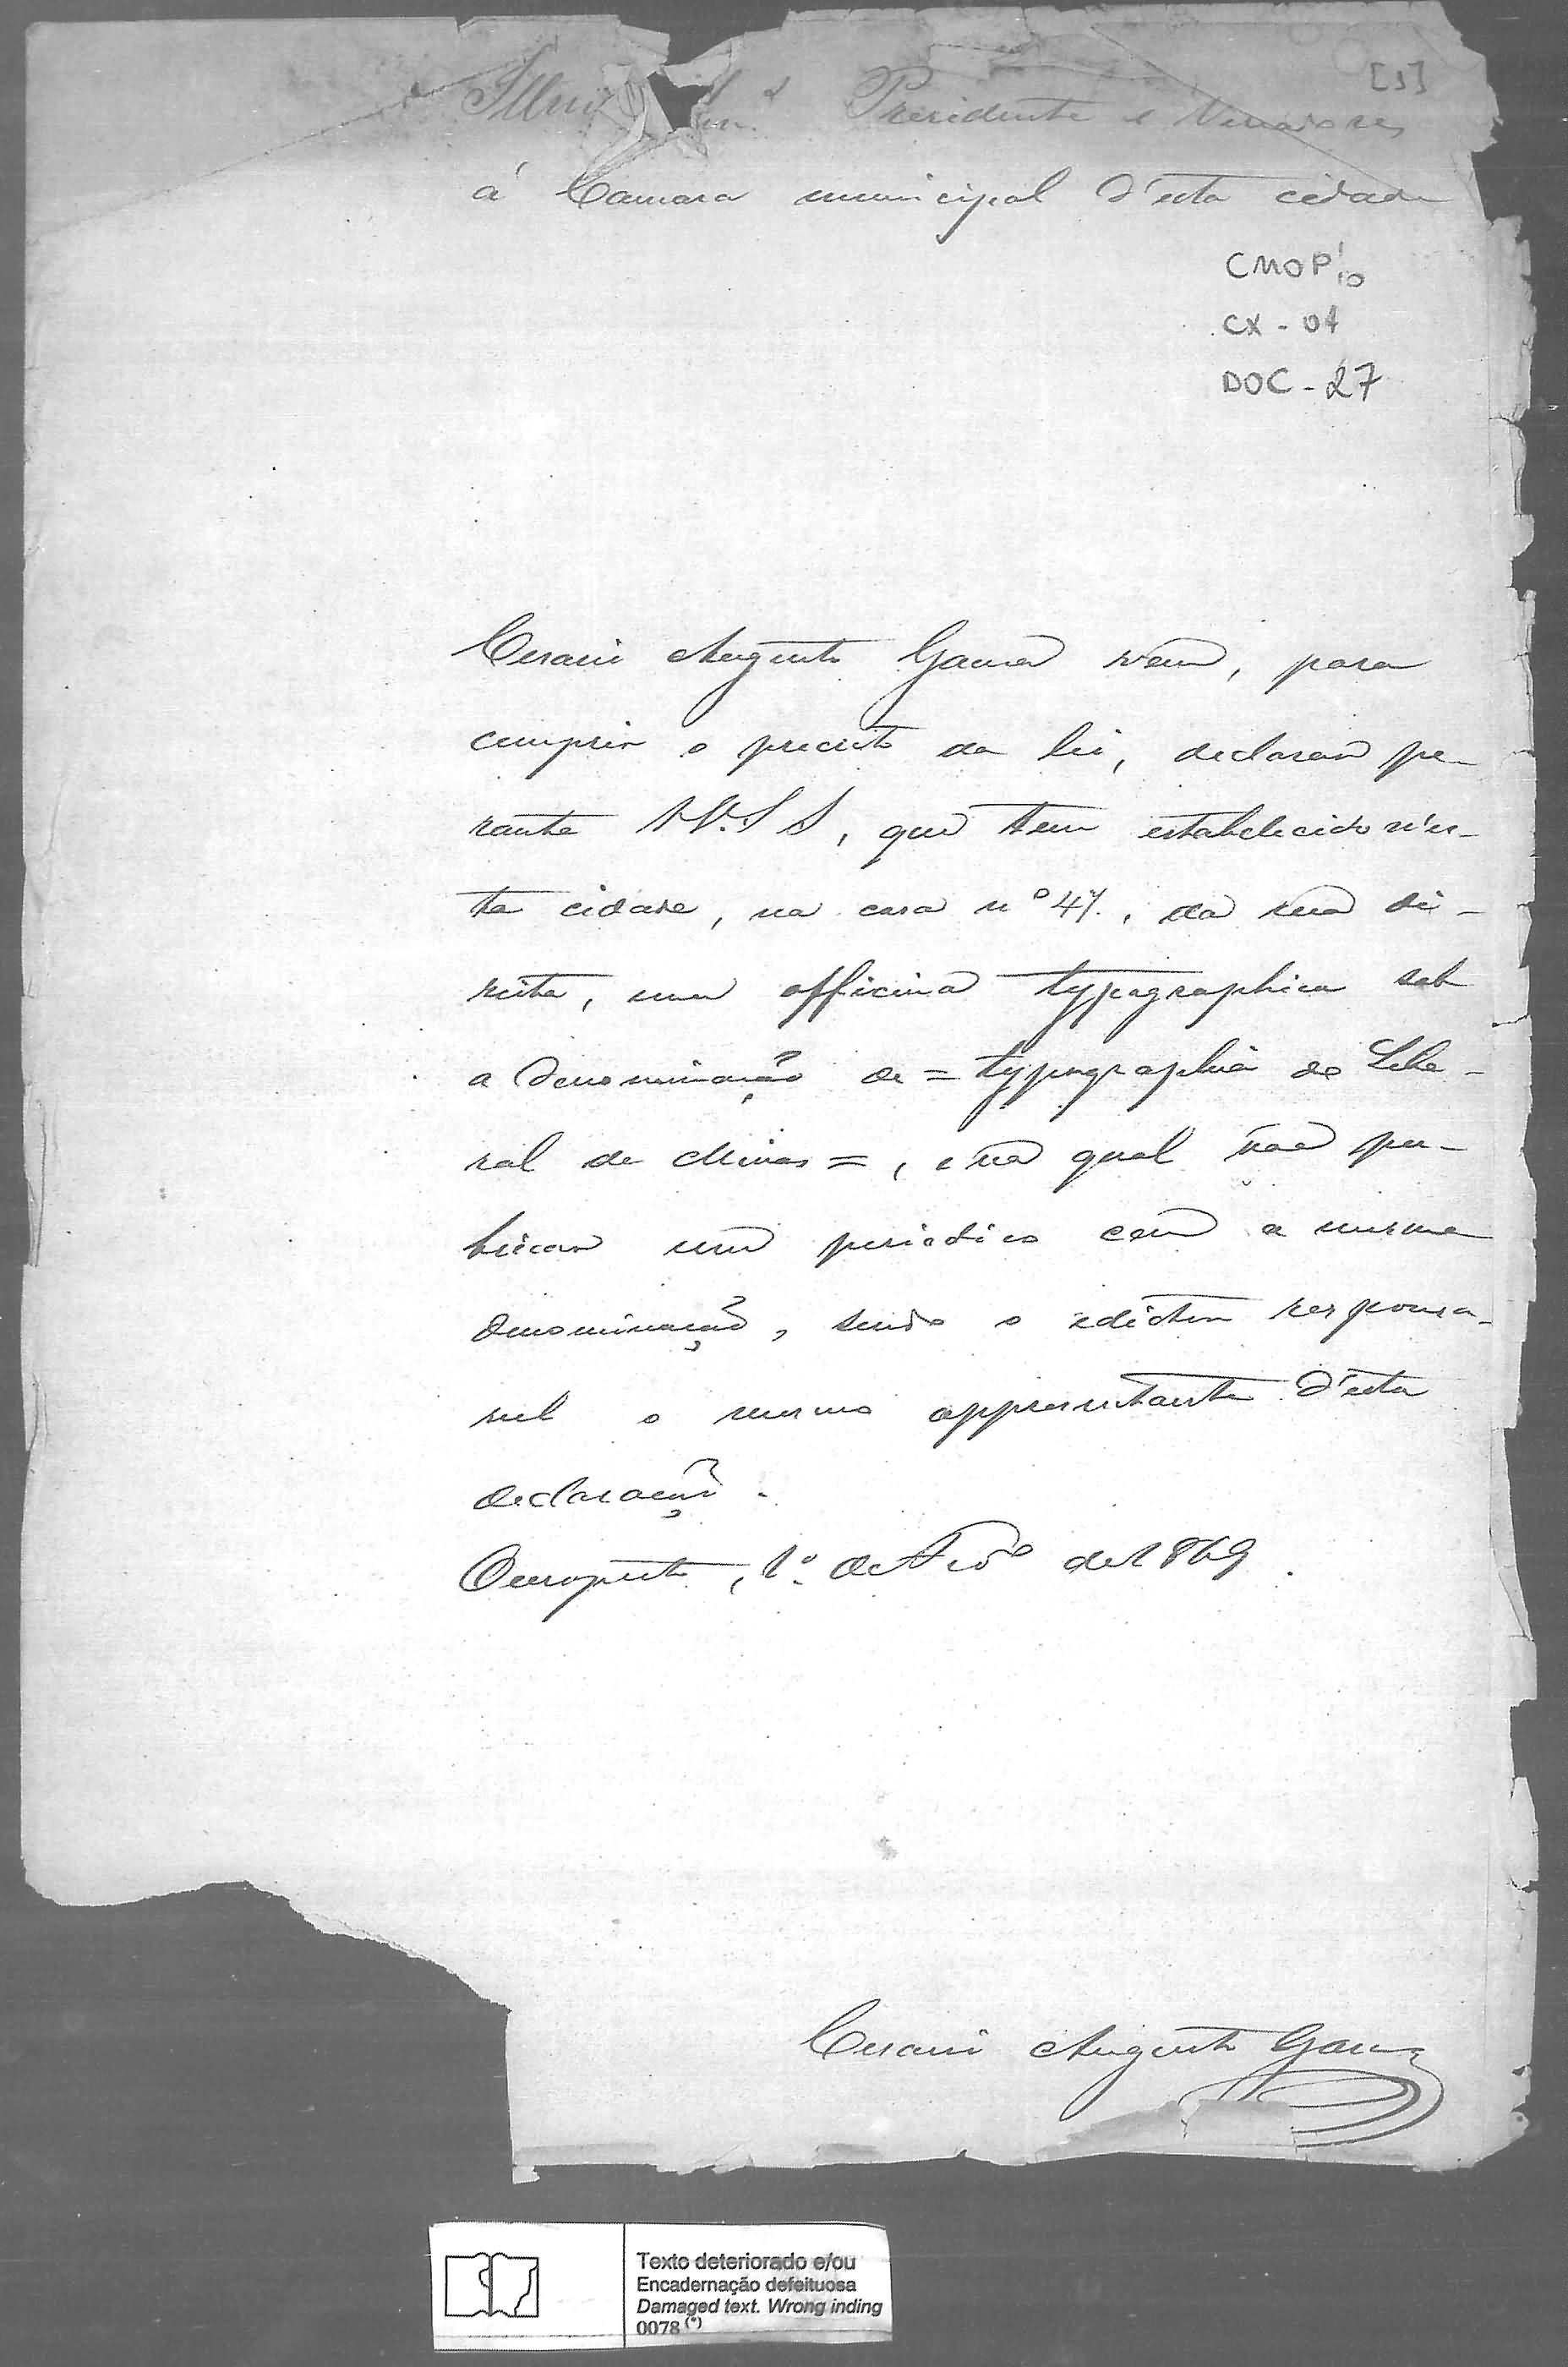 [1]
Illm Presidente e Vereadores
á Camara municipal d'esta cidade
CMOP
CX - 01
DOC - 27
Augusto Gama vem, para
cumprir o preceito da lei, declarar pe-
rante VV. S S, que tem estabelecido n'es-
ta cidade, na casa nº 47, da rua di-
reita, uma officina typographica sob
a denominação de = typographia do Libe-
ral de Minas =, e na qual vae pu-
blicar um periodico com a mesma
denominação, sendo o edictor responsa-
vel o mesmo appresentante d'esta
declaração.
Ouropreto, 1º de de 1869.
Augusto Gama
Texto deteriorado e/ou
Encadernação defeituosa
Damaged text. Wrong inding
0078 (*)